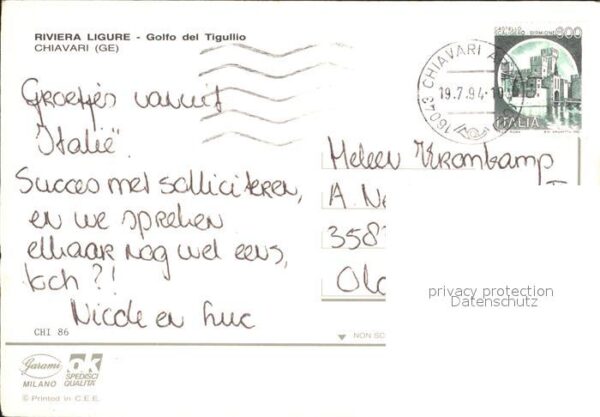 RIVIERA LIGURE - Golfo del Tigullio
CHIAVARI (GE)
Groetjes vanuit
"Italië".
Succes met solliciteren,
en we spreken
elkaar nog wel eens,
toch?!
Nicole en Luc
CHI 86
16043 CHIAVARI
19.7.94
SIRMIONE
ITALIA
Heleen Kromkamp
A. Ne
358
Old
privacy protection
Datenschutz
NON SC
Garami
MILANO
ok
SPEDISCI
QUALITA'
© Printed in C.E.E.